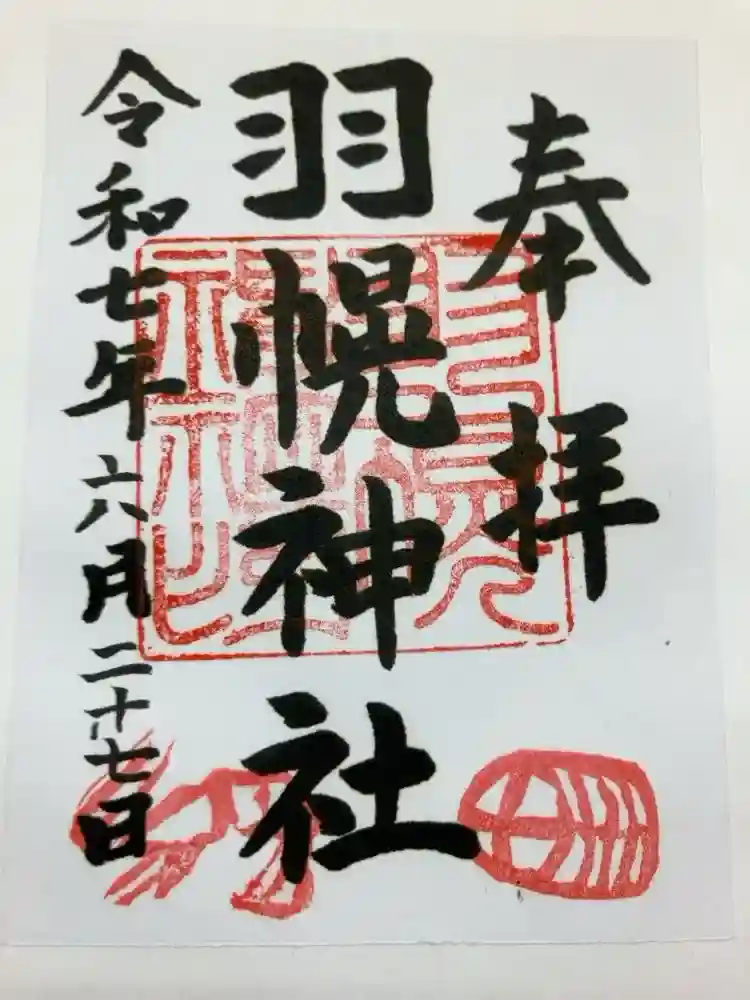 奉拝
羽幌神社
令和七年六月二十七日